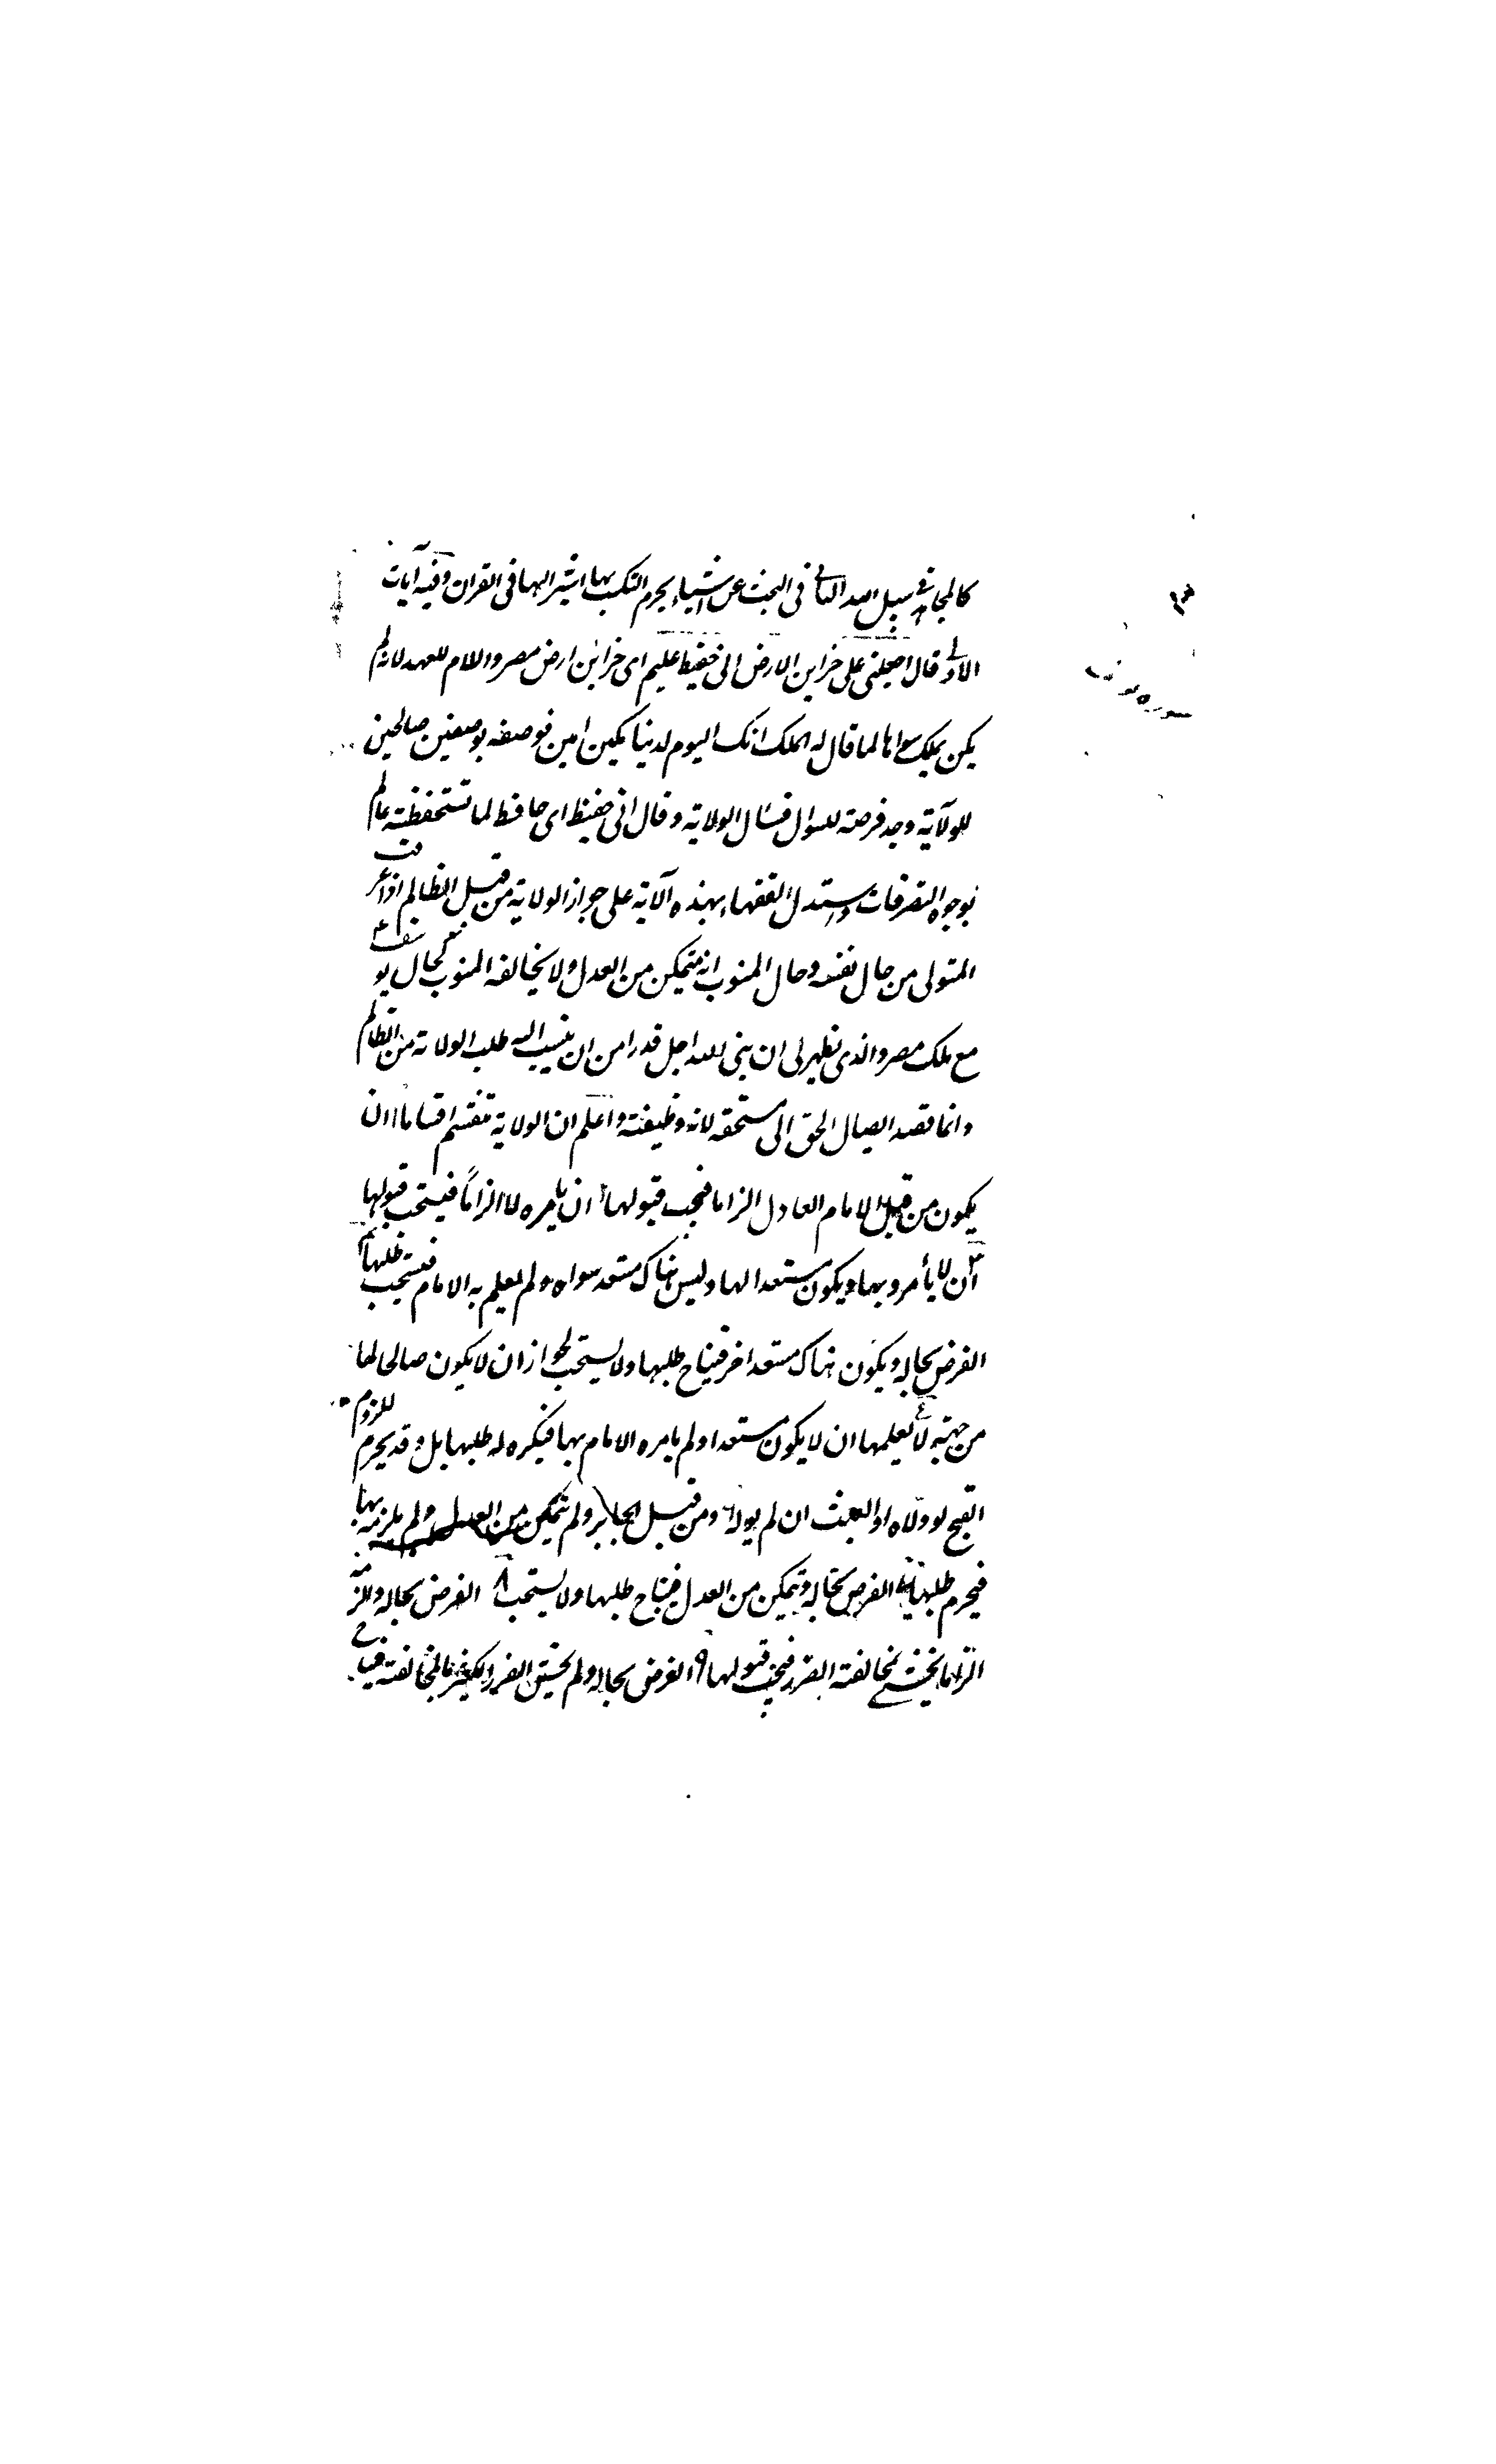 كالمجاهد في سبيل الله الثاني في البحث عن اشياء يحرم التكسب بها اشير اليها في القران وفيه آيات
الاولى قال اجعلني على خزاين الارض انى حفيظ عليم اى خزاين ارض مصر واللام للعهد لانه لم
يكن يملك سواها لما قال له الملك انك اليوم لدينا مكين امين فوصفه بوصفين صالحين
للولآية وجد فرصة للسؤال فسئال الولاية وقال انى حفيظ اى حافظ لما تستحفظنيه عالم
بوجوه التصرفات واستدل الفقهاء بهذه الآية على جواز الولاية من قبل الظالم اذا عرف
المتولى من حال نفسه وحال المنوب انه متمكن من العدل ولا يخالفه المنوب كحال يوسف ع
مع ملك مصر والذى يظهر لى ان نبى الله اجل قدرا من ان ينسب اليه طلب الولاية من الظالم
وانما قصد ايصال الحق الى مستحقه لانه وظيفته واعلم ان الولاية تنقسم اقساما ا ان
يكون من قبل الامام العادل الزاما فيجب قبولها ٢ ان يامره لا الزاماً فيستحب قبولها
٣ أن لا يأمره بها ويكون مستعدا لها وليس هناك مستعد سواه ولم يعلم به الامام فيستحب طلبها
الفرض بحاله ويكون هناك مستعد اخر فيباح طلبها ولا يستحب لجواز ان لا يكون صالحا لها
من جهته لا يعلمها ان لا يكون مستعدا ولم يامره الامام بها فيكره له طلبها بل وقد يحرم للزوم
القبح لو ولاه او العبث ان لم يوله ومن قبل الجاير ولم يتمكن من العدل ولم يلزمه بها
فيحرم طلبها الفرض بحاله ويتمكن من العدل فيباح طلبها ولا يستحب ٨ الفرض بحاله والزمه
الزاما يخشى بمخالفته الضرر فيجب قبولها ٩ الفرض بحاله ولم يخش الضرر الكثير بالمخالفة فيباح